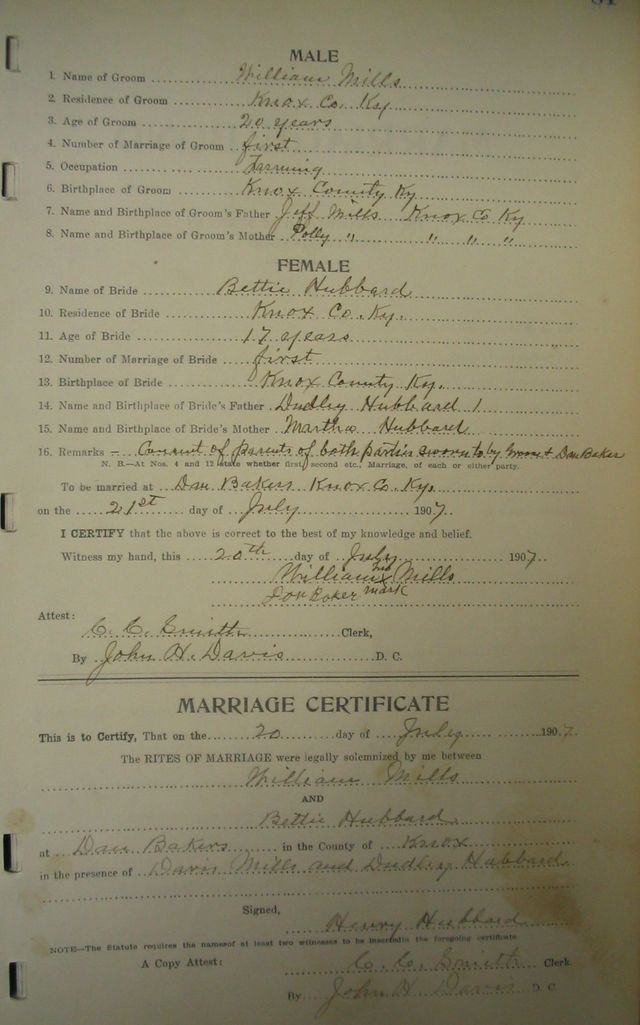 MALE
1. Name of Groom William Mills
2. Residence of Groom Knox Co. Ky
3. Age of Groom 20 years
4. Number of Marriage of Groom first
5. Occupation Farming
6. Birthplace of Groom Knox County Ky
7. Name and Birthplace of Groom's Father Jeff Mills Knox Co Ky
8. Name and Birthplace of Groom's Mother Polly " " " "
FEMALE
9. Name of Bride Bettie Hubbard
10. Residence of Bride Knox Co. Ky.
11. Age of Bride 17 years
12. Number of Marriage of Bride first
13. Birthplace of Bride Knox County Ky.
14. Name and Birthplace of Bride's Father Dudley Hubbard
15. Name and Birthplace of Bride's Mother Martha Hubbard
16. Remarks – Consent of parents of both parties sworn to by Groom & Dan Baker
N. B.—At Nos. 4 and 12 state whether first, second etc., Marriage, of each or either party.
To be married at Dan Bakers Knox Co. Ky.
on the 21st day of July 1907.
I CERTIFY that the above is correct to the best of my knowledge and belief.
Witness my hand, this 20th day of July 1907
William his x Mills
Baker mark
Attest:
C. C. Smith Clerk,
By John H. Davis D. C.
MARRIAGE CERTIFICATE
This is to Certify, That on the 20 day of July 1907
The RITES OF MARRIAGE were legally solemnized by me between
William Mills
AND
Bettie Hubbard
at Dan Bakers in the County of Knox
in the presence of Davis Mills and Dudley Hubbard
Signed,
Henry Hubbard
NOTE—The Statute requires the names of at least two witnesses to be inserted in the foregoing certificate
A Copy Attest: C. C. Smith Clerk.
By John H Davis D. C.